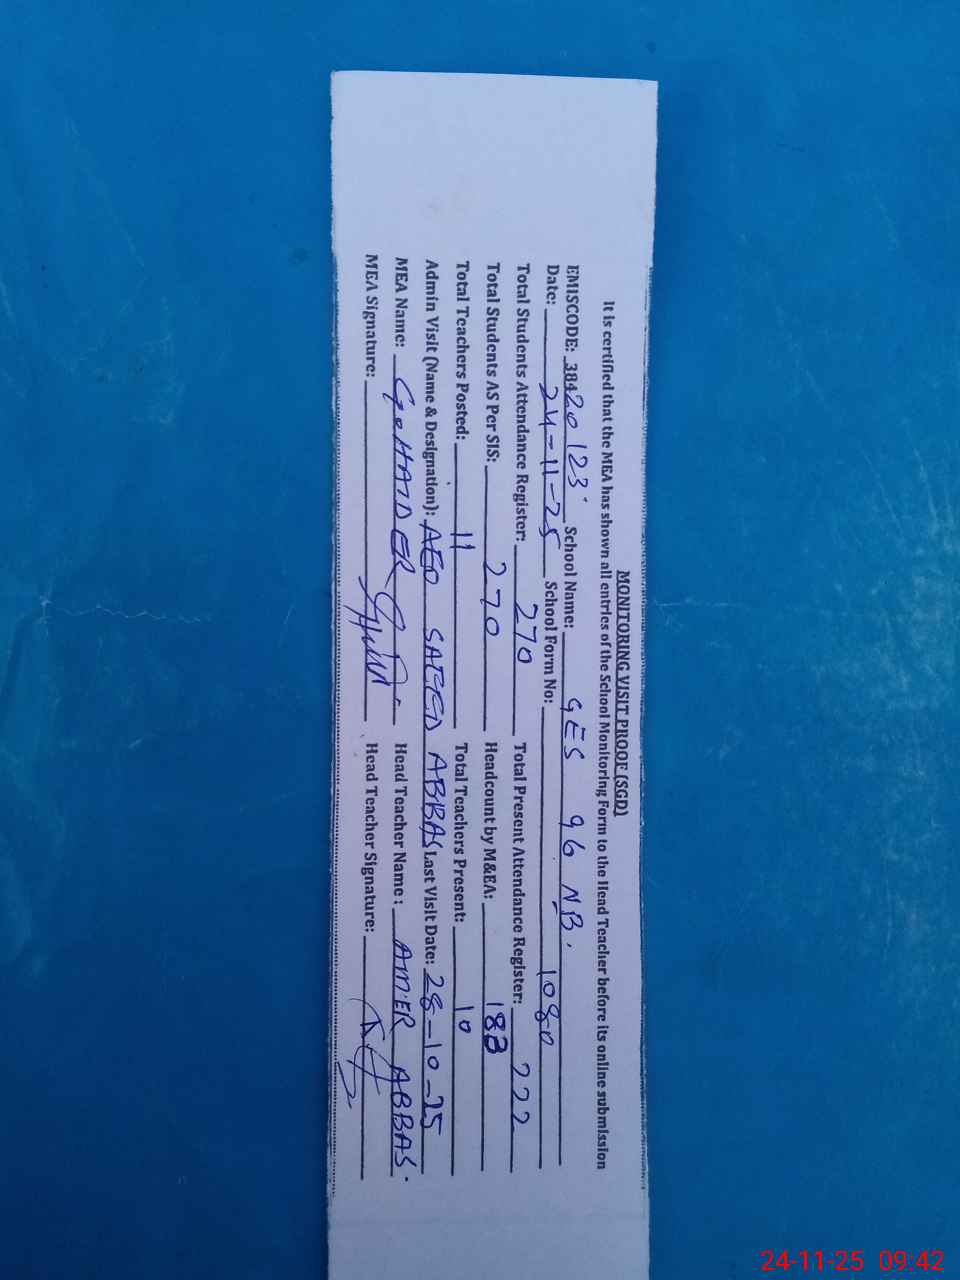 MONITORING VISIT PROOF (SGD)
It is certified that the MEA has shown all entries of the School Monitoring Form to the Head Teacher before its online submission
EMISCODE: 38420123 School Name: GES 96 NB.
Date: 24-11-25 School Form No: 1080
Total Students Attendance Register: 270 Total Present Attendance Register: 222
Total Students AS Per SIS: 270 Headcount by M&EA: 183
Total Teachers Posted: 11 Total Teachers Present: 10
Admin Visit (Name & Designation): AEO SAEED ABBAS Last Visit Date: 28-10-25
MEA Name: G.HAIDER Head Teacher Name: AMER ABBAS.
MEA Signature: Head Teacher Signature:
24-11-25 09:42